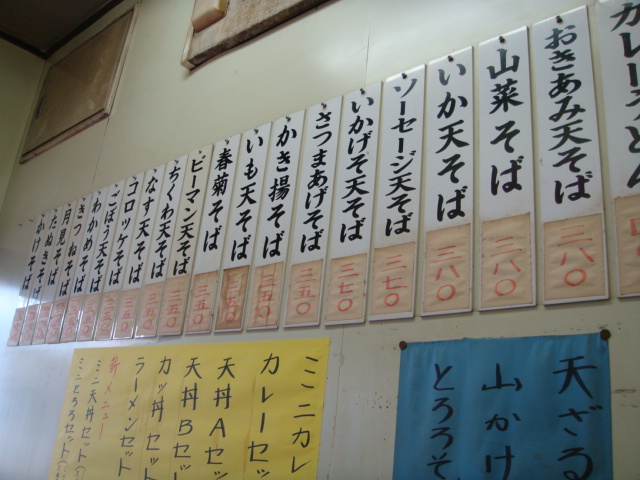 おきあみ天そば
三八〇
山菜そば
三八〇
いか天そば
三八〇
ソーセージ天そば
三七〇
いかげそ天そば
三七〇
さつまあげそば
三五〇
かき揚そば
三五〇
いも天そば
三五〇
春菊そば
三五〇
ピーマン天そば
三五〇
ちくわ天そば
三五〇
なす天そば
三五〇
コロッケそば
三五〇
ごぼう天そば
わかめそば
きつねそば
月見そば
たぬきそば
かけそば
天ざる
山かけ
とろろそ
ミニカレ
カレーセッ
天丼Aセッ
天丼Bセッ
カツ丼セット
ラーメンセット
新メニュー
ミニ天丼セット
ミニとろろセット